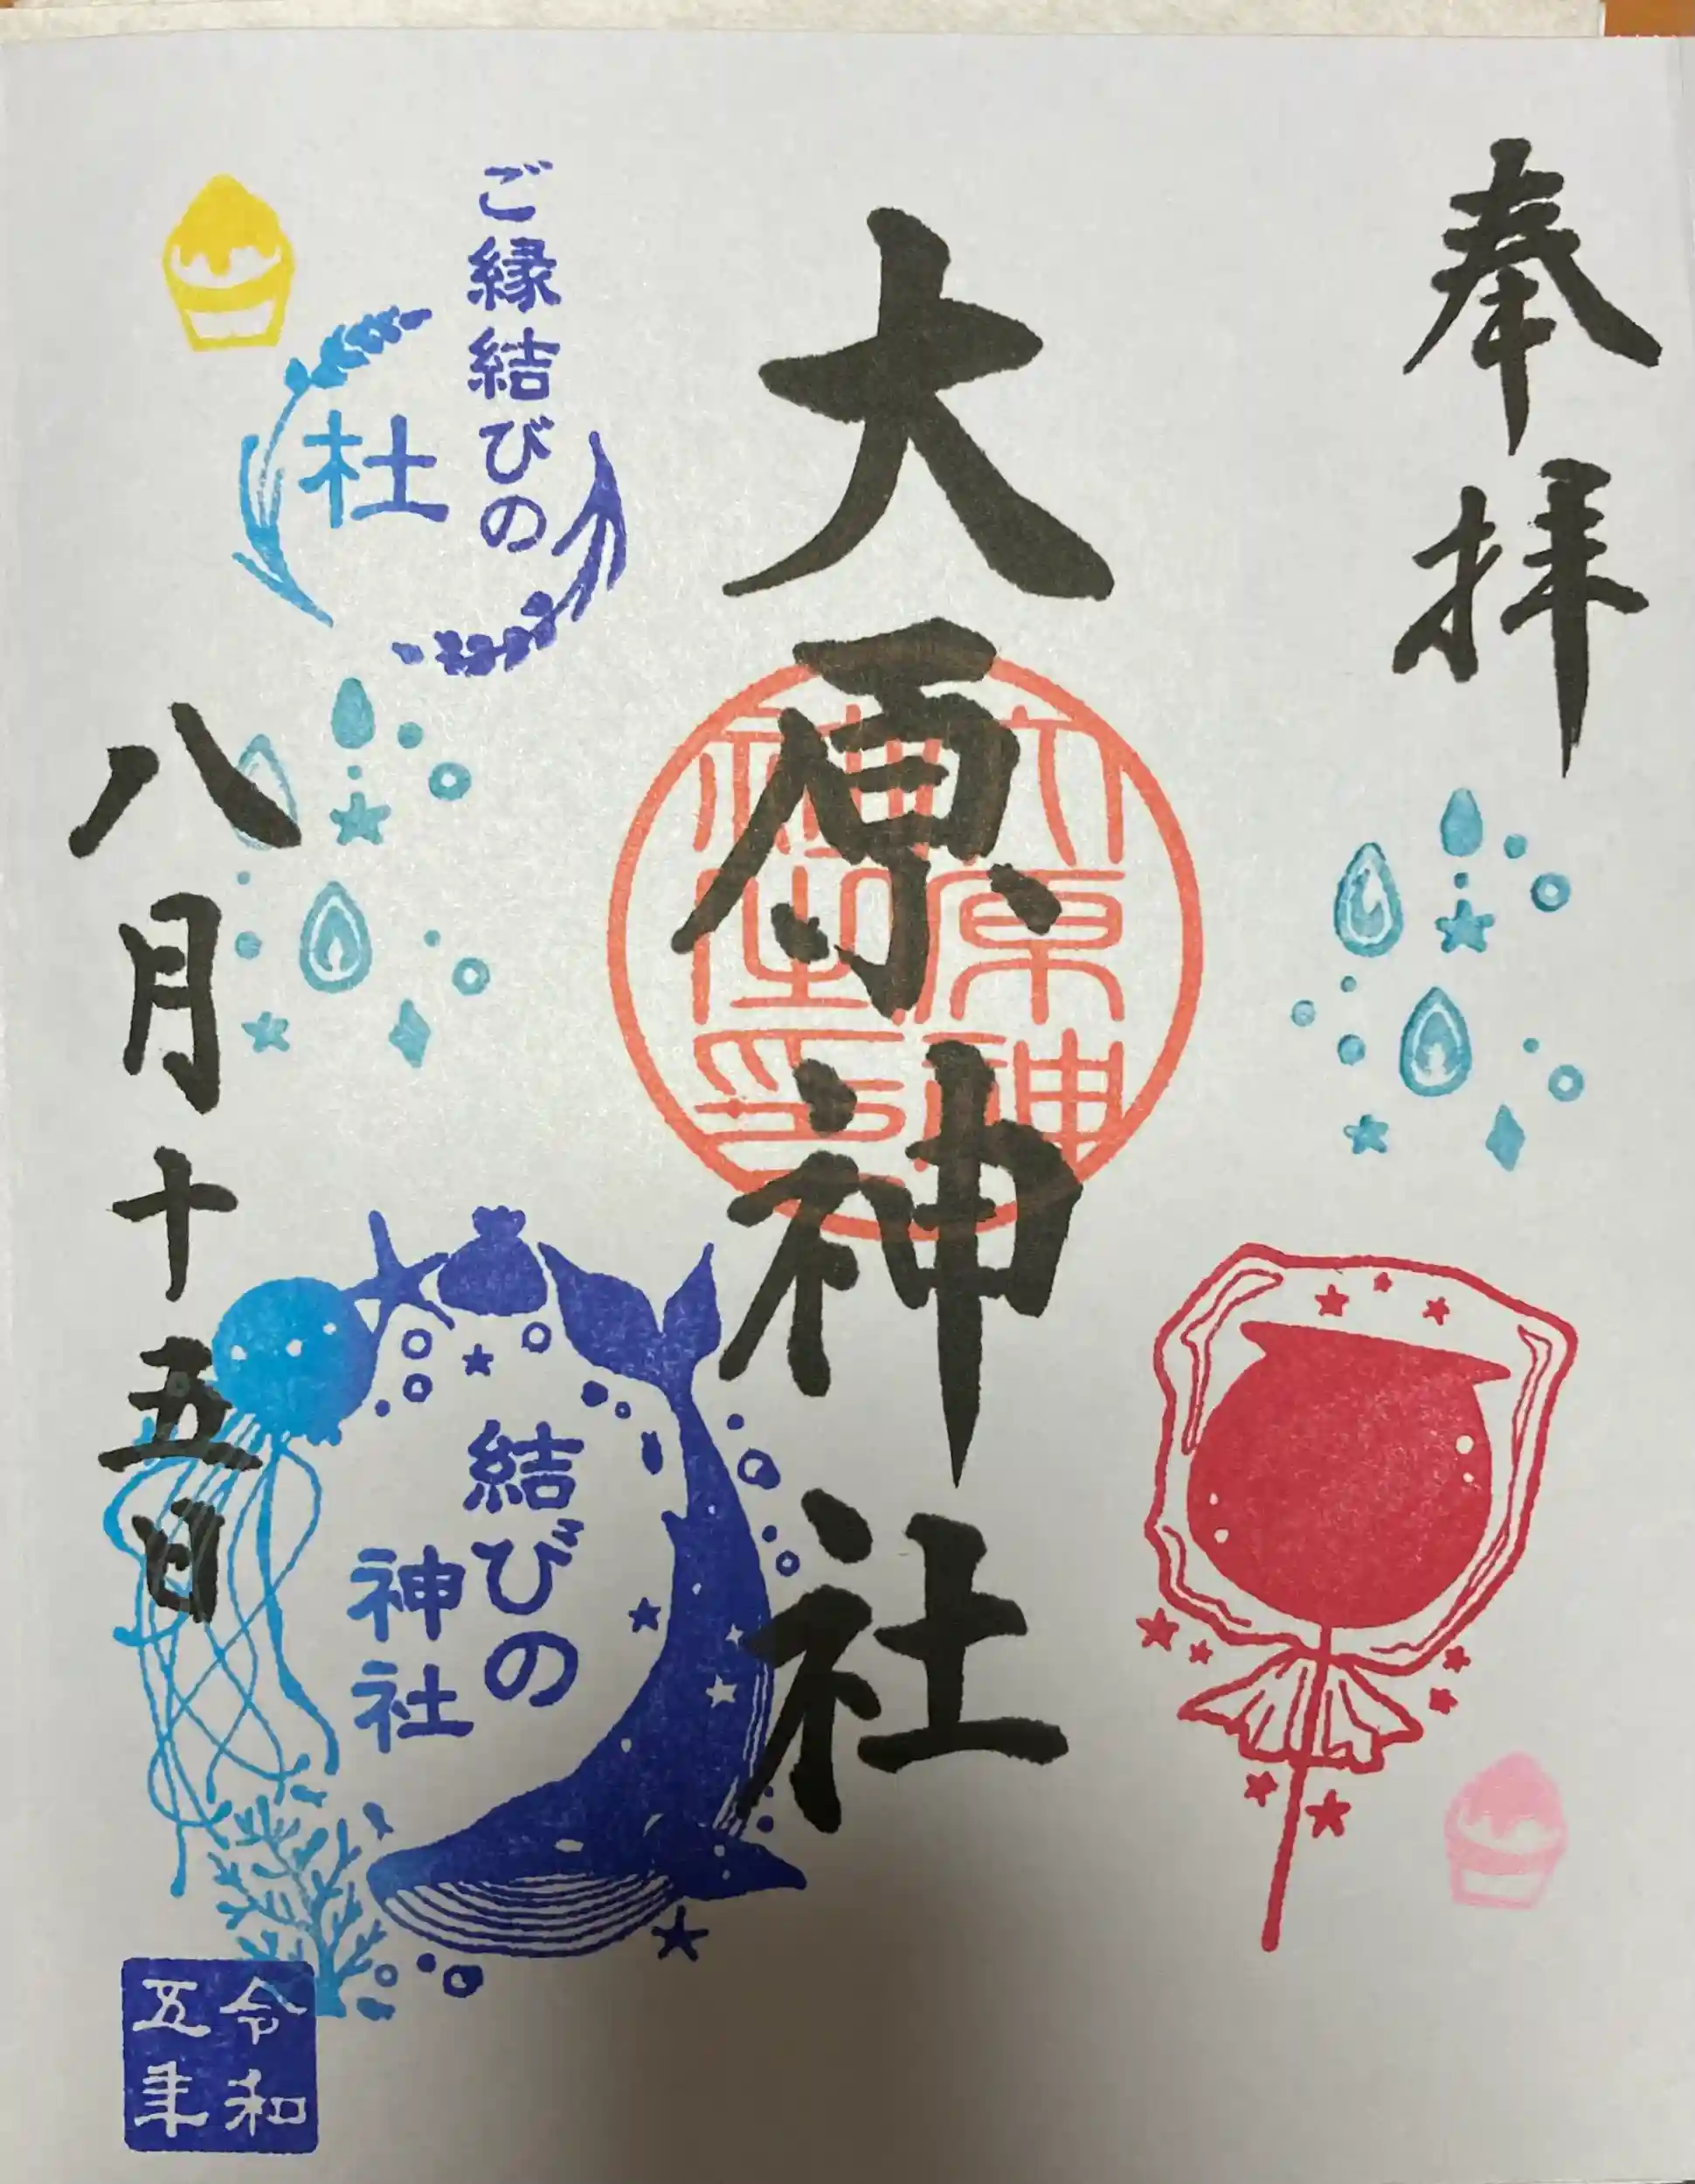 奉拝
大原神社
大原神社之印
ご縁結びの
杜
八月十五日
結びの
神社
令和
五年